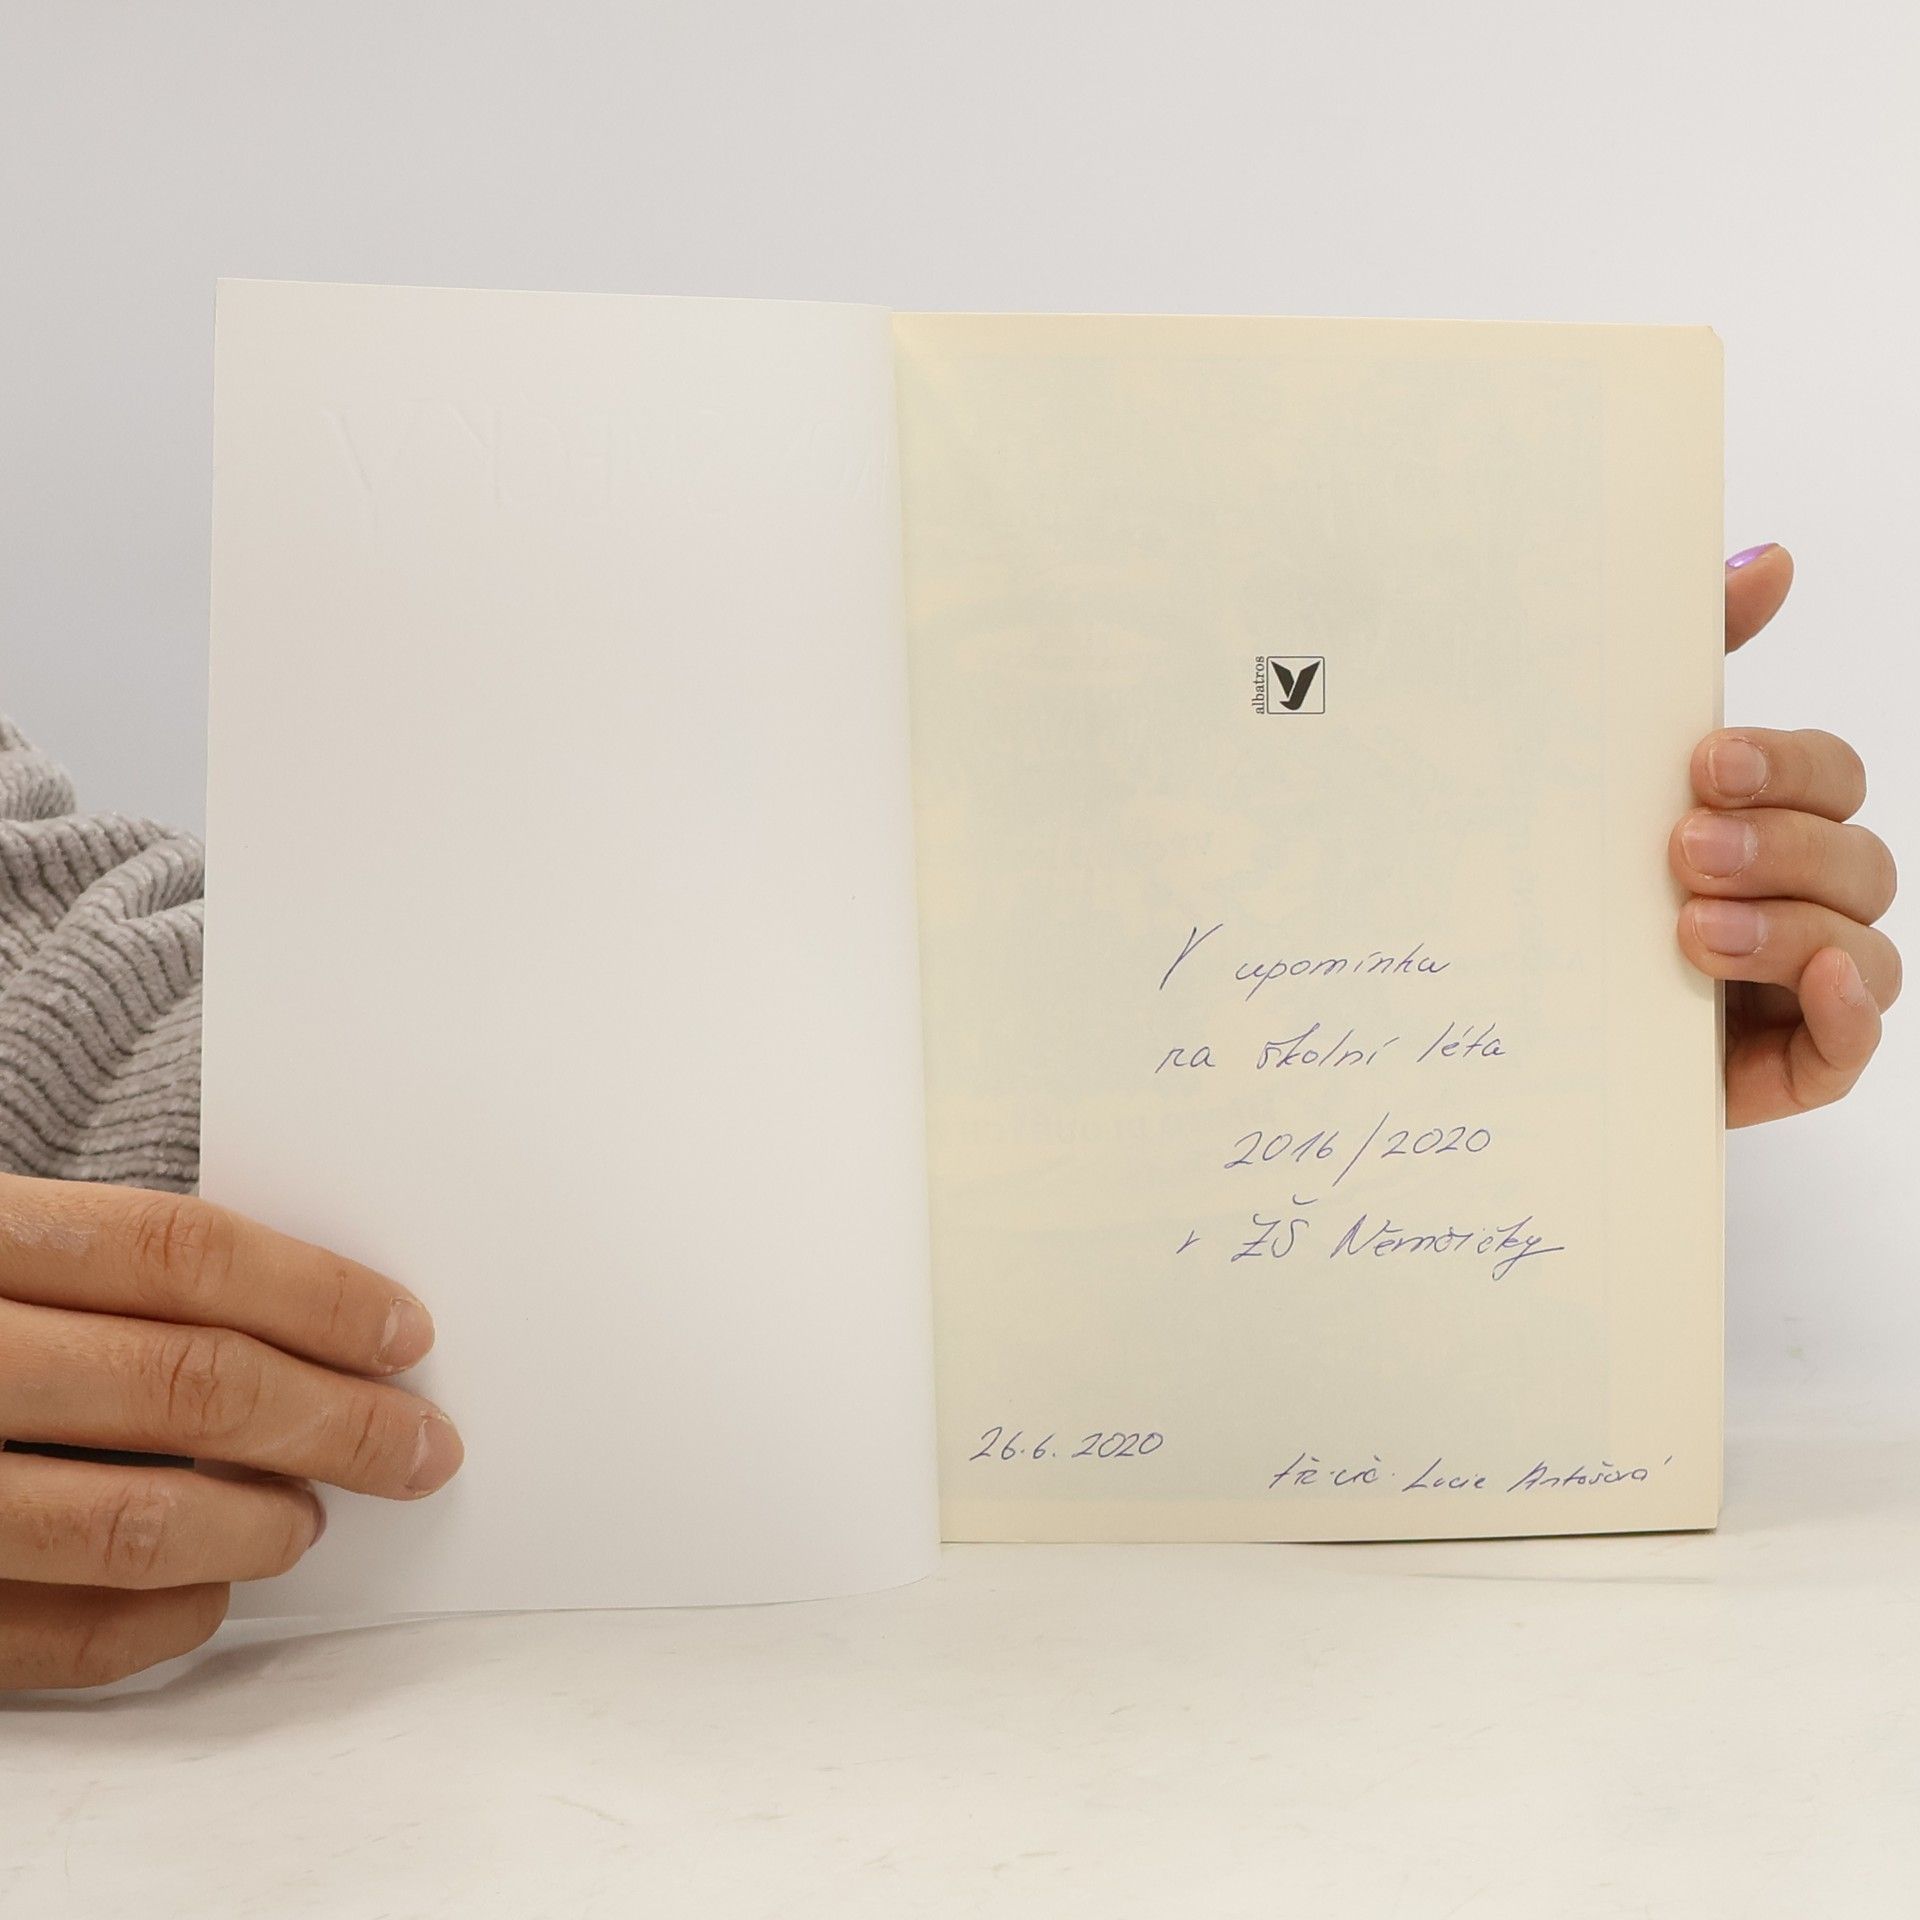 albatros
V upomínku
na školní léta
2016/2020
v ZŠ Němčičky
26.6.2020
tř. uč. Lucie Antošová